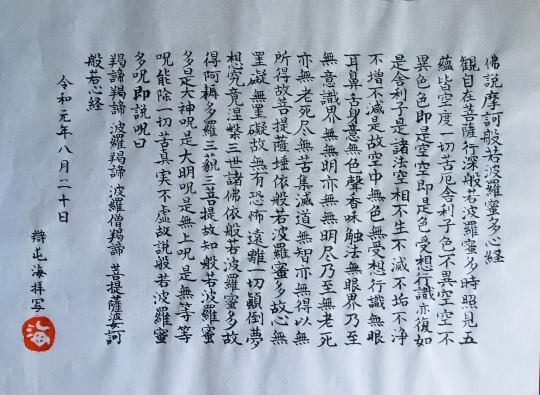 佛説摩訶般若波羅蜜多心経
観自在菩薩行深般若波羅蜜多時照見五
蘊皆空度一切苦厄舎利子色不異空空不
異色色即是空空即是色受想行識亦復如
是舎利子是諸法空相不生不滅不垢不浄
不増不減是故空中無色無受想行識無眼
耳鼻舌身意無色聲香味触法無眼界乃至
無意識界無無明亦無無明尽乃至無老死
亦無老死尽無苦集滅道無智亦無得以無
所得故菩提薩埵依般若波羅蜜多故心無
罣礙無罣礙故無有恐怖遠離一切顛倒夢
想究竟涅槃三世諸佛依般若波羅蜜多故
得阿耨多羅三藐三菩提故知般若波羅蜜
多是大神呪是大明呪是無上呪是無等等
呪能除一切苦真実不虚故説般若波羅蜜
多呪即説呪曰
羯諦羯諦 波羅羯諦 波羅僧羯諦 菩提薩婆訶
般若心経
令和元年八月二十日
海拝写
海